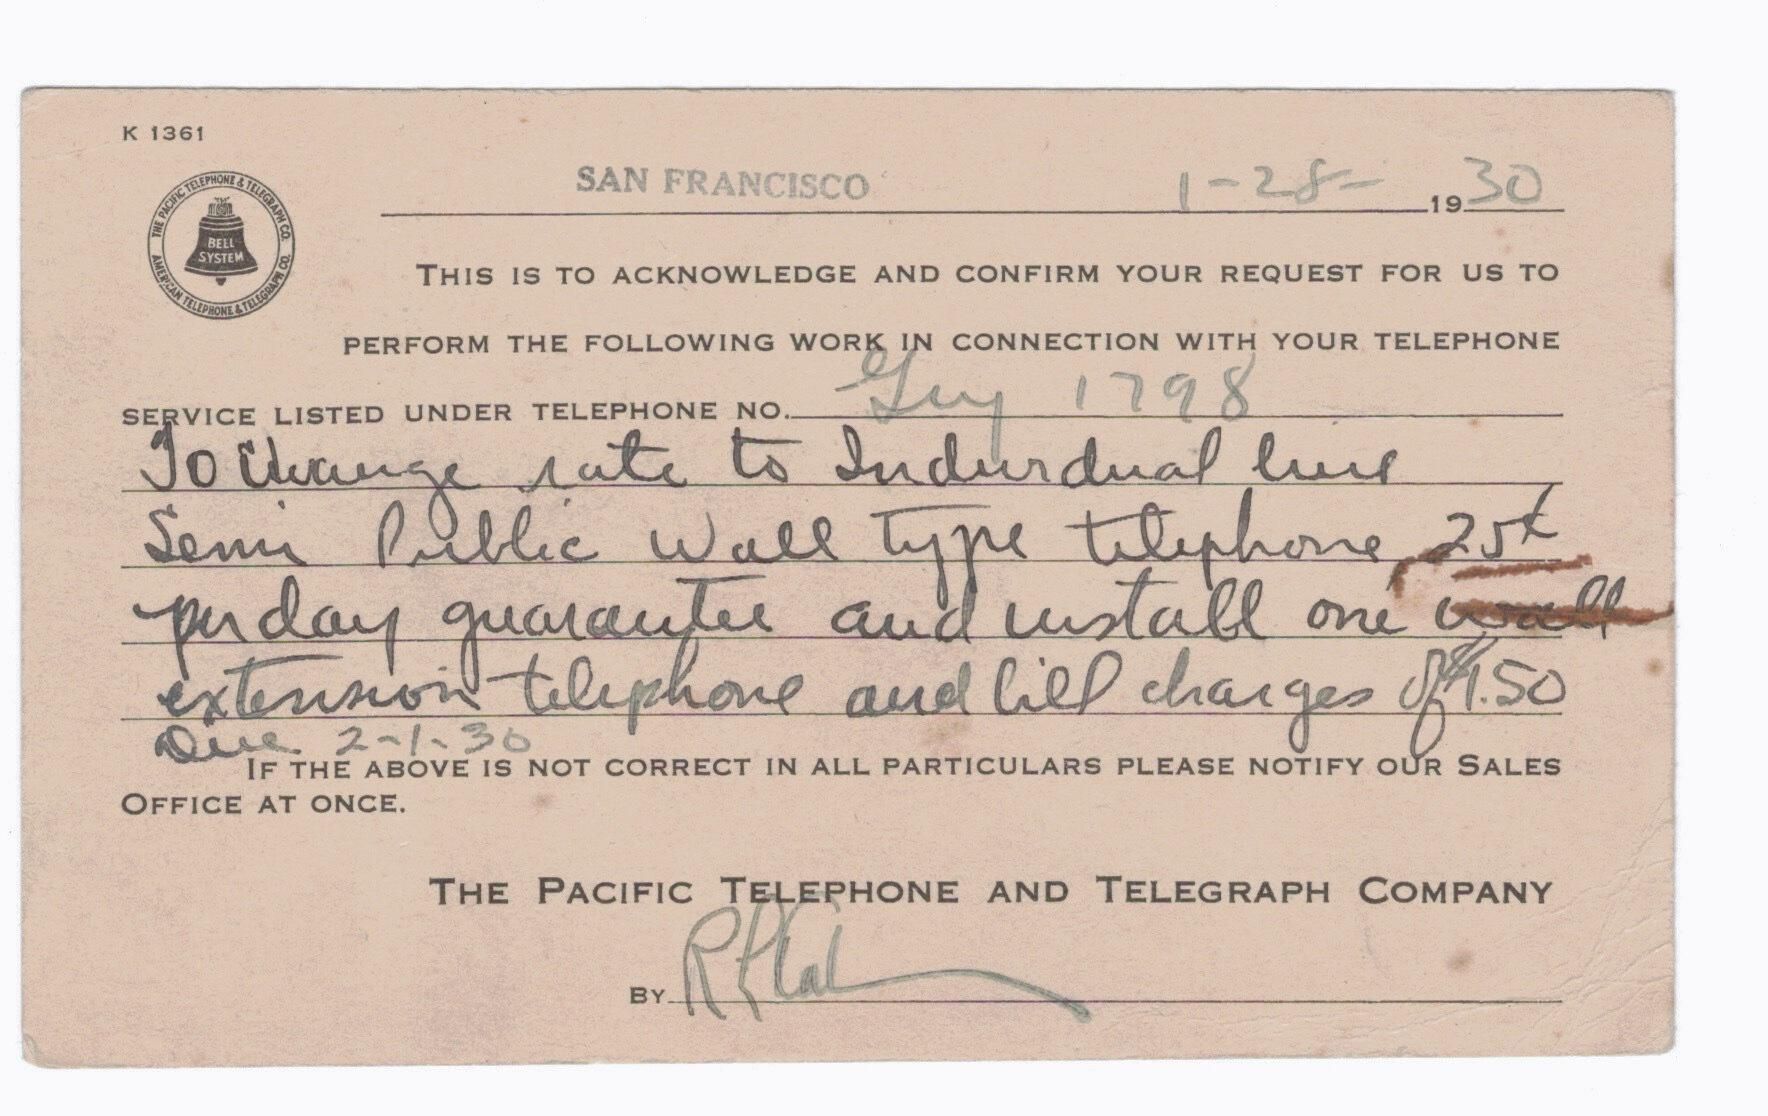 K 1361
THE PACIFIC TELEPHONE & TELEGRAPH CO.
BELL
SYSTEM
AMERICAN TELEPHONE & TELEGRAPH CO.
SAN FRANCISCO 1-28- 1930
THIS IS TO ACKNOWLEDGE AND CONFIRM YOUR REQUEST FOR US TO
PERFORM THE FOLLOWING WORK IN CONNECTION WITH YOUR TELEPHONE
SERVICE LISTED UNDER TELEPHONE NO. 1798
To Change rate to Individual line
Semi Public Wall Type telephone 25¢
per day guarantee and install one wall
extension telephone and bill charges of $1.50
Due 2-1-30
IF THE ABOVE IS NOT CORRECT IN ALL PARTICULARS PLEASE NOTIFY OUR SALES
OFFICE AT ONCE.
THE PACIFIC TELEPHONE AND TELEGRAPH COMPANY
BY